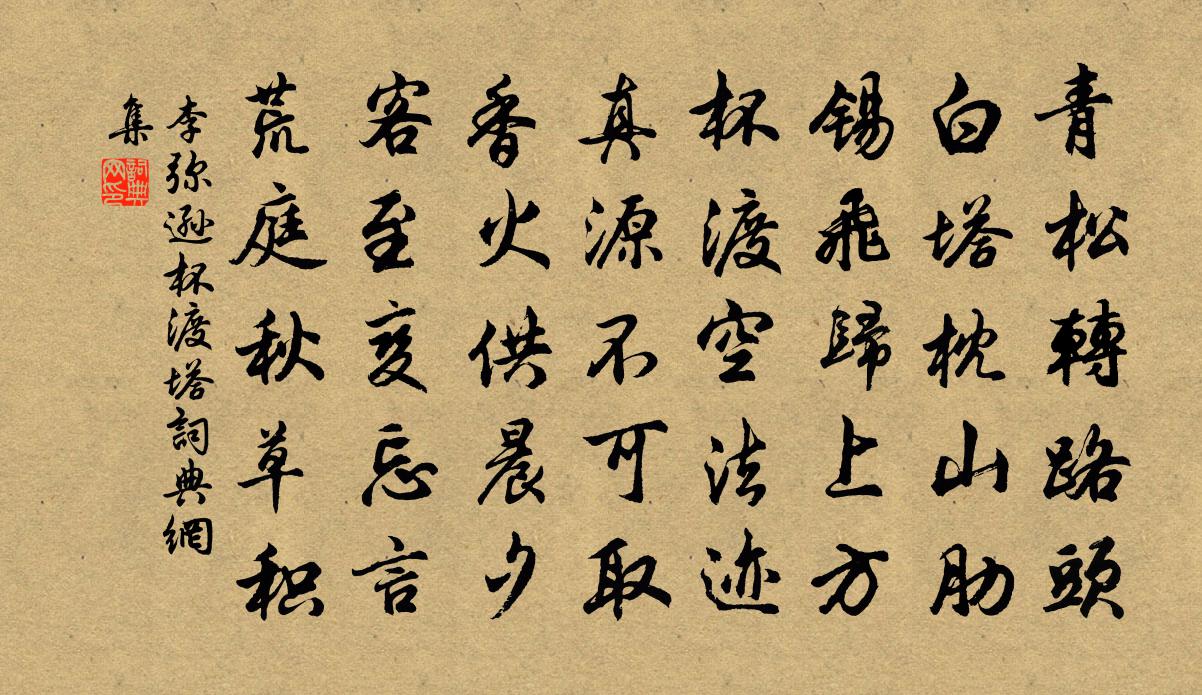 青松轉路頭
白塔枕山肋
錫飛歸上方
杯渡空法迹
真源不可取
香火供晨夕
客至夏忘言
荒庭秋草积
李弥遜杯渡塔詞典網
集
詞典
网印